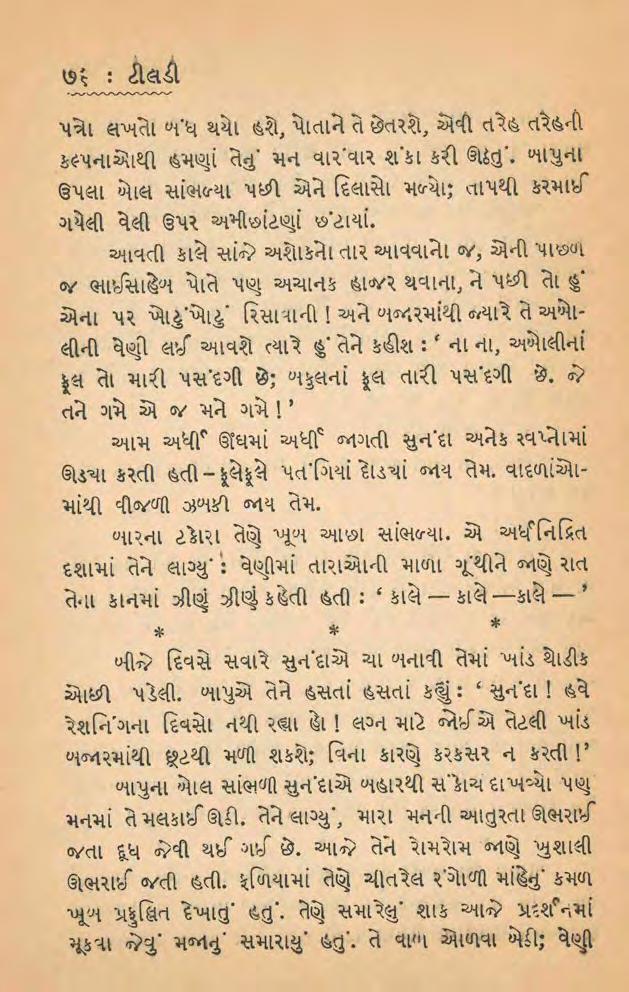 ૭૬ : ટીલડી
પત્રો લખતો બંધ થયો હશે, પોતાને તે છેતરશે, એવી તરેહ તરેહની
કલ્પનાઓથી હમણાં તેનું મન વારંવાર શંકા કરી ઊઠતું. બાપુના
ઉપલા બોલ સાંભળ્યા પછી એને દિલાસો મળ્યો; તાપથી કરમાઈ
ગયેલી વેલી ઉપર અમીછાંટણાં છંટાયાં.
આવતી કાલે સાંજે અશોકનો તાર આવવાનો જ, એની પાછળ
જ ભાઈસાહેબ પોતે પણ અચાનક હાજર થવાના, ને પછી તો હું
એના પર ખોટુંખોટું રિસાવાની ! અને બજારમાંથી જ્યારે તે અબો-
લીની વેણી લઈ આવશે ત્યારે હું તેને કહીશ : ‘ ના ના, અબોલીનાં
ફૂલ તો મારી પસંદગી છે; બકુલનાં ફૂલ તારી પસંદગી છે. જે
તને ગમે એ જ મને ગમે ! ’
આમ અર્ધી ઊંઘમાં અર્ધી જાગતી સુનંદા અનેક સ્વપ્નોમાં
ઊડ્યા કરતી હતી – ફૂલેફૂલે પતંગિયાં દોડ્યાં જાય તેમ. વાદળાંઓ-
માંથી વીજળી ઝબકી જાય તેમ.
બારના ટકોરા તેણે ખૂબ આછા સાંભળ્યા. એ અર્ધનિદ્રિત
દશામાં તેને લાગ્યું : વેણીમાં તારાઓની માળા ગૂંથીને જાણે રાત
તેના કાનમાં ઝીણું ઝીણું કહેતી હતી : ‘ કાલે — કાલે —કાલે — ’
* * *
બીજે દિવસે સવારે સુનંદાએ ચા બનાવી તેમાં ખાંડ થોડીક
ઓછી પડેલી. બાપુએ તેને હસતાં હસતાં કહ્યું : ‘ સુનંદા ! હવે
રેશનિંગના દિવસો નથી રહ્યા હો ! લગ્ન માટે જોઈએ તેટલી ખાંડ
બજારમાંથી છૂટથી મળી શકશે; વિના કારણે કરકસર ન કરતી !’
બાપુના બોલ સાંભળી સુનંદાએ બહારથી સંકોચ દાખવ્યો પણ
મનમાં તે મલકાઈ ઊઠી. તેને લાગ્યું, મારા મનની આતુરતા ઊભરાઈ
જતા દૂધ જેવી થઈ ગઈ છે. આજે તેને રોમરોમ જાણે ખુશાલી
ઊભરાઈ જતી હતી. ફળિયામાં તેણે ચીતરેલ રંગોળી માંહેનું કમળ
ખૂબ પ્રફુલ્લિત દેખાતું હતું. તેણે સમારેલું શાક આજે પ્રદર્શનમાં
મૂકવા જેવું મજાનું સમારાયું હતું. તે વાળ ઓળવા બેઠી; વેણી